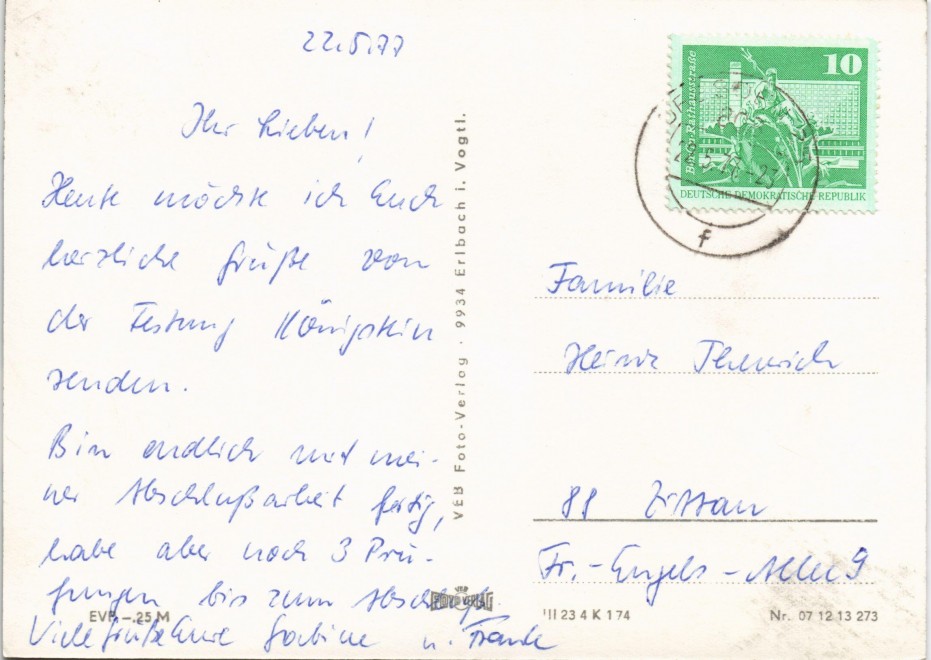 22.5.77
Ihr Lieben!
Heute möchte ich Euch
herzliche Grüße von
der Festung Königstein
senden.
Bin endlich mit mei-
ner Abschlußarbeit fertig,
habe aber noch 3 Prü-
fungen bis zum Abschluß.
Viele Grüße Eure Sabine u. Frank
EVP –.25 M
VEB Foto-Verlag · 9934 Erlbach i. Vogtl.
VEB
FOTO VERLAG
10
Berlin-Rathausstraße
DEUTSCHE DEMOKRATISCHE REPUBLIK
f
Familie
Heinz
88 Zittau
Fr.-Engels-Allee 9
III 23 4 K 1 74
Nr. 07 12 13 273